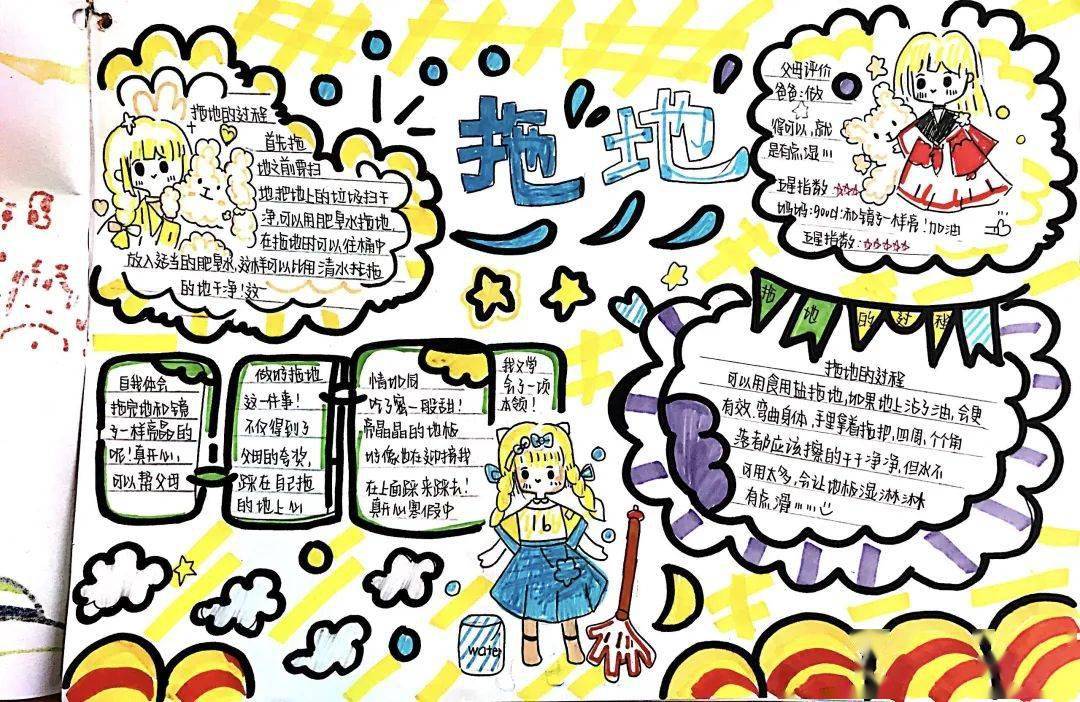 拖地
拖地的过程
首先拖
地之前要扫
地把地上的垃圾扫干
净,可以用肥皂水拖地,
在拖地时可以往桶中
放入适当的肥皂水,这样可以比用清水拖拖
的地干净!这一
父母评价
爸爸:做
得可以,就
是有点湿!!!
五星指数:☆☆☆
妈妈:good!和镜子一样亮!加油
五星指数:☆☆☆☆☆
自我体会
拖完地和镜
子一样亮晶的
呢!真开心,
可以帮父母
做好拖地
这一件事!
不仅得到了
父母的夸奖,
踩在自己拖
的地上心
情如同
吃了蜜一般甜!
亮晶晶的地板
好像也在迎接我
在上面踩来踩去!
真开心寒假中
我又学
会了一项
本领!
拖地的过程
拖地的过程
可以用食用盐拖地,如果地上沾了油,会更
有效.弯曲身体,手里拿着拖把,四周,个个角
落都应该擦的干干净净,但水不
可用太多,会让地板湿淋淋
有点滑!!!!!!
16
water